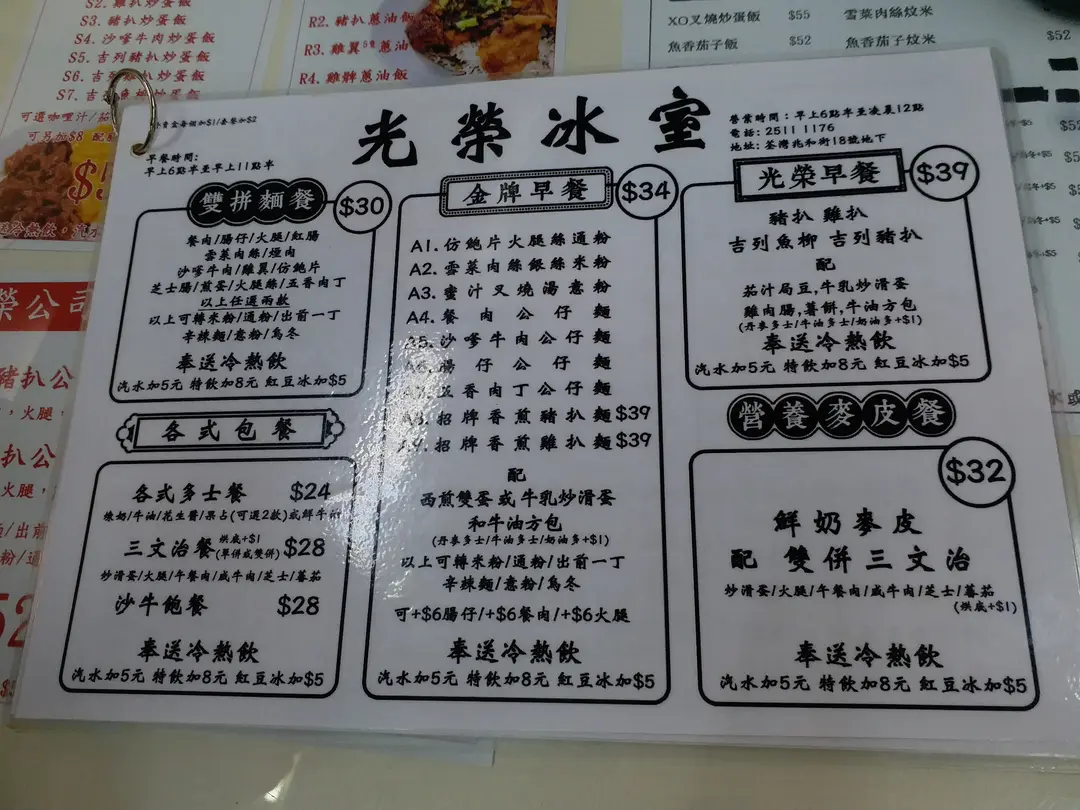 S2. 雞扒炒蛋飯
S3. 豬扒炒蛋飯
S4. 沙嗲牛肉炒蛋飯
S5. 吉列豬扒炒蛋飯
S6. 吉列雞扒炒蛋飯
S7. 吉列魚柳炒蛋飯
可選咖喱汁/茄
可另加$8 配
R2. 豬扒蔥油飯
R3. 雞翼 蔥油
R4. 雞髀蔥油飯
XO叉燒炒蛋飯 $55 雪菜肉絲炆米
魚香茄子飯 $52 魚香茄子炆米
$52
榮公司
豬扒公
,火腿,
扒公
火腿,
光榮冰室
外賣盒每個加$1/套餐加$2
早餐時間:
早上6點半至早上11點半
營業時間:早上6點半至凌晨12點
電話: 2511 1176
地址: 荃灣兆和街18號地下
雙拼麵餐 $30
餐肉/腸仔/火腿/紅腸
雪菜肉絲/煙肉
沙嗲牛肉/雞翼/仿鮑片
芝士腸/煎蛋/火腿絲/五香肉丁
以上任選兩款
以上可轉米粉/通粉/出前一丁
辛辣麵/意粉/烏冬
奉送冷熱飲
汽水加5元 特飲加8元 紅豆冰加$5
各式包餐
各式多士餐 $24
煉奶/牛油/花生醬/果占(可選2款)或鮮牛油
三文治餐 烘底+$1 (單併或雙併) $28
炒滑蛋/火腿/午餐肉/咸牛肉/芝士/蕃茄
沙牛飽餐 $28
奉送冷熱飲
汽水加5元 特飲加8元 紅豆冰加$5
金牌早餐 $34
A1. 仿鮑片火腿絲通粉
A2. 雪菜肉絲銀絲米粉
A3. 蜜汁叉燒湯意粉
A4. 餐肉公仔麵
A5. 沙嗲牛肉公仔麵
A6. 腸仔公仔麵
五香肉丁公仔麵
A8. 招牌香煎豬扒麵 $39
A9. 招牌香煎雞扒麵 $39
配
西煎雙蛋或牛乳炒滑蛋
和牛油方包
(丹麥多士/牛油多士/奶油多+$1)
以上可轉米粉/通粉/出前一丁
辛辣麵/意粉/烏冬
可+$6腸仔/+$6餐肉/+$6火腿
奉送冷熱飲
汽水加5元 特飲加8元 紅豆冰加$5
光榮早餐 $39
豬扒 雞扒
吉列魚柳 吉列豬扒
配
茄汁焗豆,牛乳炒滑蛋
雞肉腸,薯餅,牛油方包
(丹麥多士/牛油多士/奶油多+$1)
奉送冷熱飲
汽水加5元 特飲加8元 紅豆冰加$5
營養麥皮餐
$32
鮮奶麥皮
配 雙併三文治
炒滑蛋/火腿/午餐肉/咸牛肉/芝士/蕃茄
(烘底+$1)
奉送冷熱飲
汽水加5元 特飲加8元 紅豆冰加$5